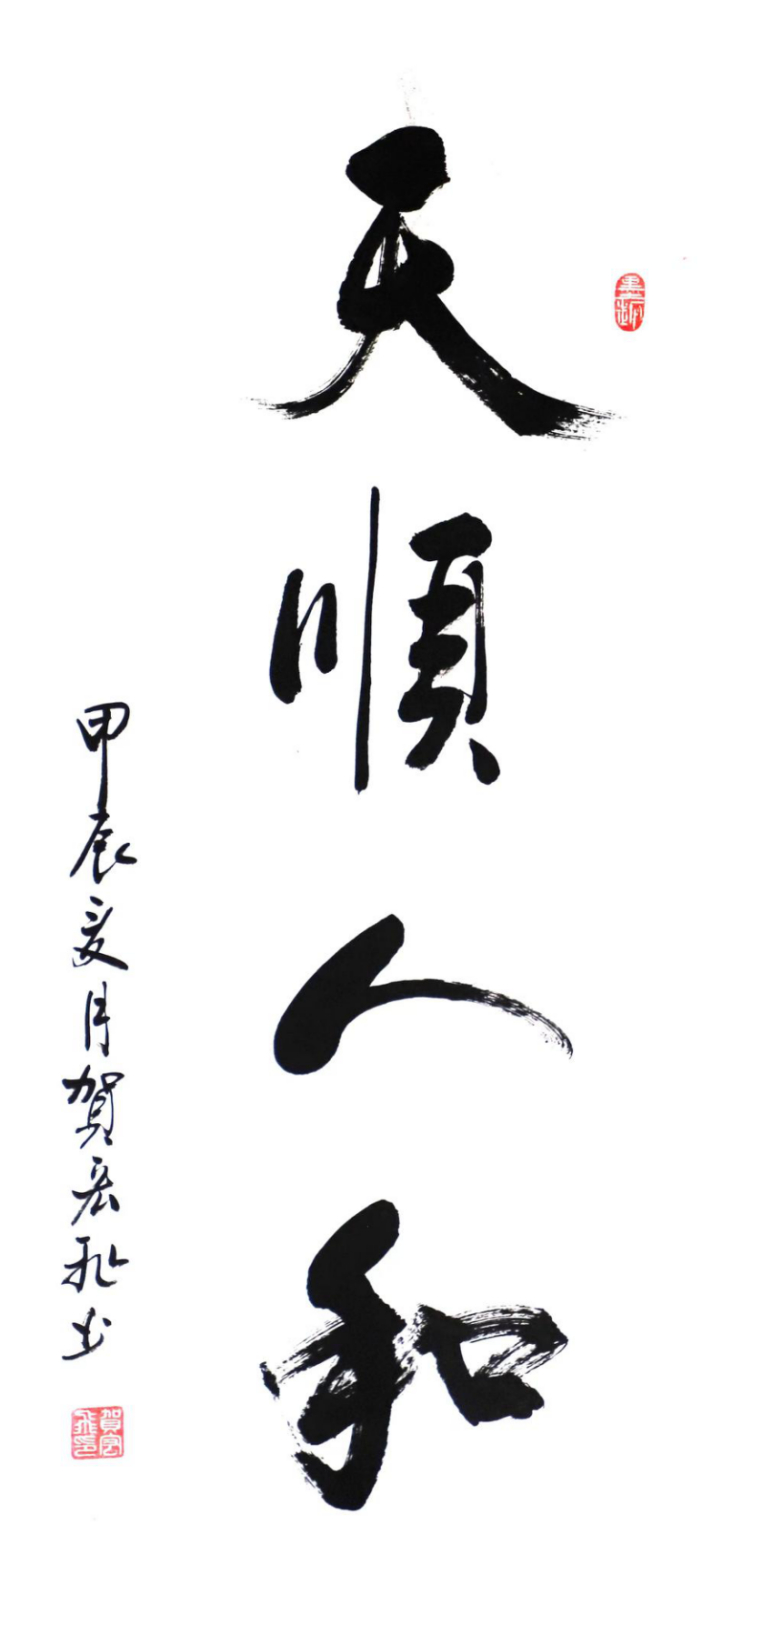 天順人和
甲辰夏月賀宏飛书
賀宏飛印